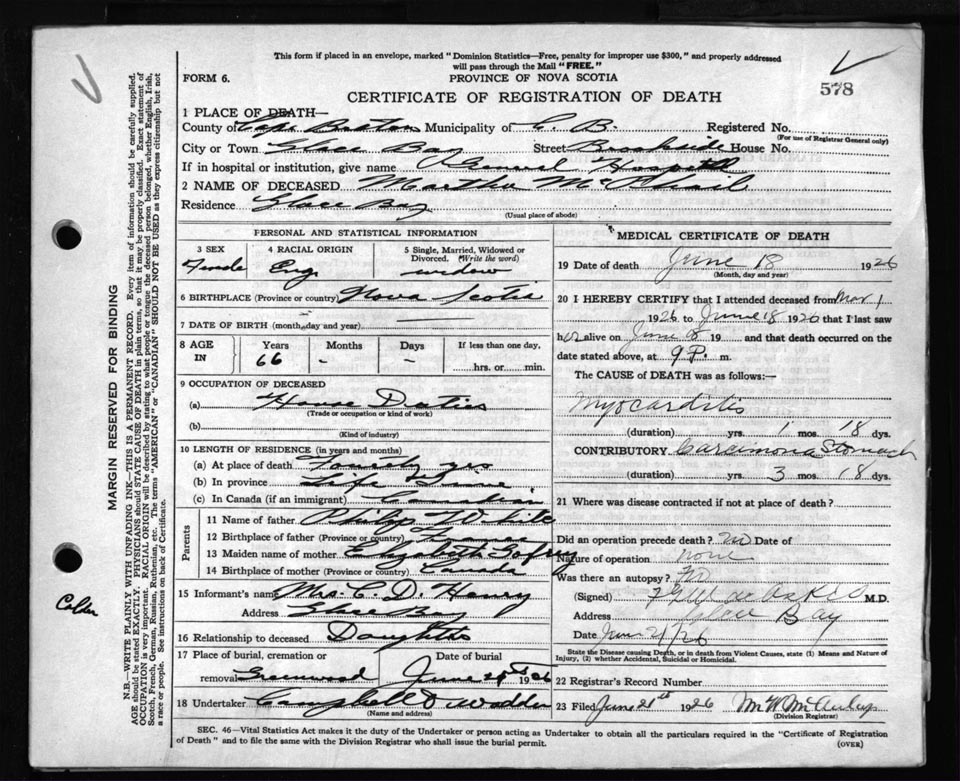 This form if placed in an envelope, marked "Dominion Statistics—Free, penalty for improper use $300," and properly addressed
will pass through the Mail "FREE."
FORM 6.
PROVINCE OF NOVA SCOTIA
578
CERTIFICATE OF REGISTRATION OF DEATH
1 PLACE OF DEATH—
County of Cape Breton Municipality of C. B. Registered No.
(For use of Registrar General only)
City or Town Glace Bay Street Brookside House No.
If in hospital or institution, give name General Hospital
2 NAME OF DECEASED Martha McPhail
Residence Glace Bay
(Usual place of abode)
PERSONAL AND STATISTICAL INFORMATION
3 SEX
Female
4 RACIAL ORIGIN
Eng
5 Single, Married, Widowed or
Divorced. (Write the word)
widow
6 BIRTHPLACE (Province or country) Nova Scotia
7 DATE OF BIRTH (month, day and year)
8 AGE
IN
Years
66
Months
-
Days
-
If less than one day,
hrs. or min.
9 OCCUPATION OF DECEASED
(a) House Duties
(Trade or occupation or kind of work)
(b)
(Kind of industry)
10 LENGTH OF RESIDENCE (in years and months)
(a) At place of death yrs
(b) In province Life Time
(c) In Canada (if an immigrant) Canadian
Parents
11 Name of father Philip
12 Birthplace of father (Province or country) France
13 Maiden name of mother Elizabeth
14 Birthplace of mother (Province or country) Canada
15 Informant's name Mrs. C. D. Henry
Address Glace Bay
16 Relationship to deceased Daughter
17 Place of burial, cremation or
removal Greenwood
Date of burial
June 1926
18 Undertaker Campbell &
(Name and address)
MEDICAL CERTIFICATE OF DEATH
19 Date of death June 18 1926
(Month, day and year)
20 I HEREBY CERTIFY that I attended deceased from Mar 1
1926 to June 18 1926 that I last saw
her alive on June 18 19 and that death occurred on the
date stated above, at 9 P. m.
The CAUSE of DEATH was as follows:—
Myocarditis
(duration) yrs. 1 mos 18 dys.
CONTRIBUTORY Carcinoma Stomach
(duration) yrs. 3 mos. 18 dys.
21 Where was disease contracted if not at place of death?
Did an operation precede death? No Date of
Nature of operation none
Was there an autopsy? No
(Signed) M.D.
Address Glace Bay
Date June 21/26
State the Disease causing Death, or in death from Violent Causes, state (1) Means and Nature of
Injury, (2) whether Accidental, Suicidal or Homicidal.
22 Registrar's Record Number
23 Filed June 21st 1926
(Division Registrar)
SEC. 46—Vital Statistics Act makes it the duty of the Undertaker or person acting as Undertaker to obtain all the particulars required in the "Certificate of Registration
of Death" and to file the same with the Division Registrar who shall issue the burial permit.
(OVER)
MARGIN RESERVED FOR BINDING
N.B.—WRITE PLAINLY WITH UNFADING INK—THIS IS A PERMANENT RECORD. Every item of information should be carefully supplied.
AGE should be stated EXACTLY. PHYSICIANS should STATE CAUSE OF DEATH in plain terms, so that it may be properly classified. Exact statement of
OCCUPATION is very important. RACIAL ORIGIN will be described by stating to what people or tongue the deceased person belonged, whether English, Irish,
Scotch, French, German, Russian, Ruthenian, etc. The terms "AMERICAN" or "CANADIAN" SHOULD NOT BE USED as they express citizenship but not
a race or people. See instructions on back of Certificate.